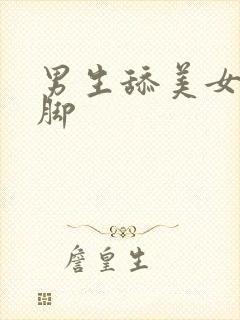 男生舔美女
脚
詹皇生